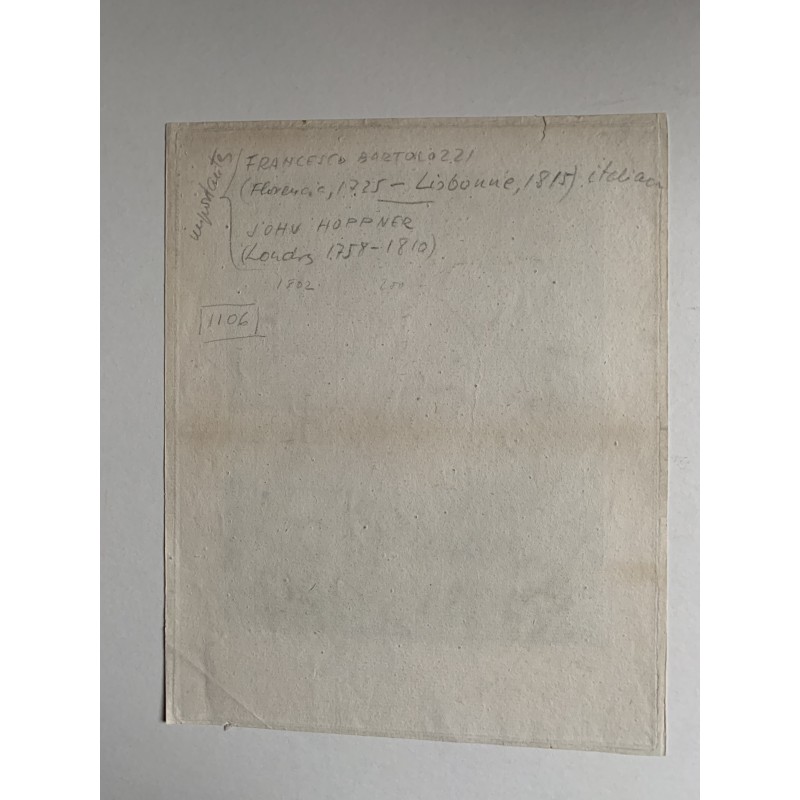 importantes
FRANCESCO BARTOLOZZI
(Florencia, 1725 - Lisbonne, 1815) italian
JOHN HOPPNER
(Londres 1758-1810)
1802
1106